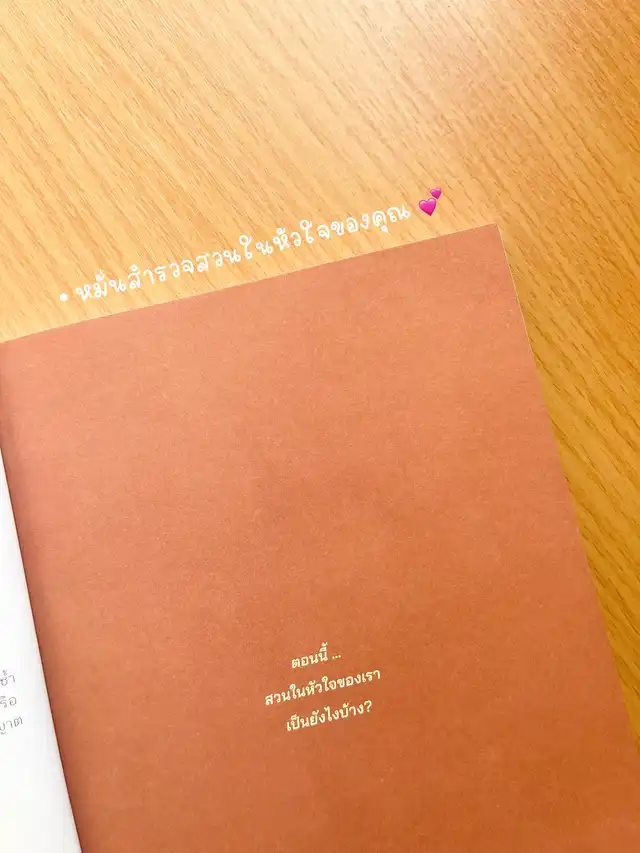 • หมั่นสำรวจสวนในหัวใจของคุณ 💕
ตอนนี้ ...
สวนในหัวใจของเรา
เป็นยังไงบ้าง?